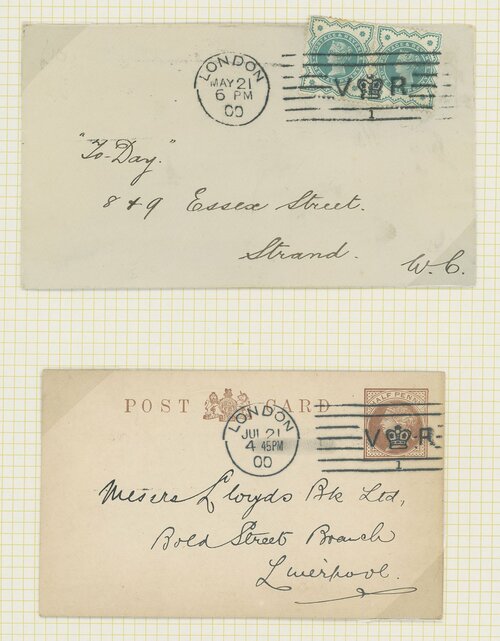 LONDON
MAY 21
6 PM
00
POSTAGE & REVENUE
POSTAGE & REVENUE
V R
1
"To-Day."
8 & 9 Essex Street.
Strand.
W.C.
POST CARD
HALF PENNY
LONDON
JUL 21
4 45PM
00
V R
1
Messrs Lloyds Bk Ltd,
Bold Street Branch
Liverpool.